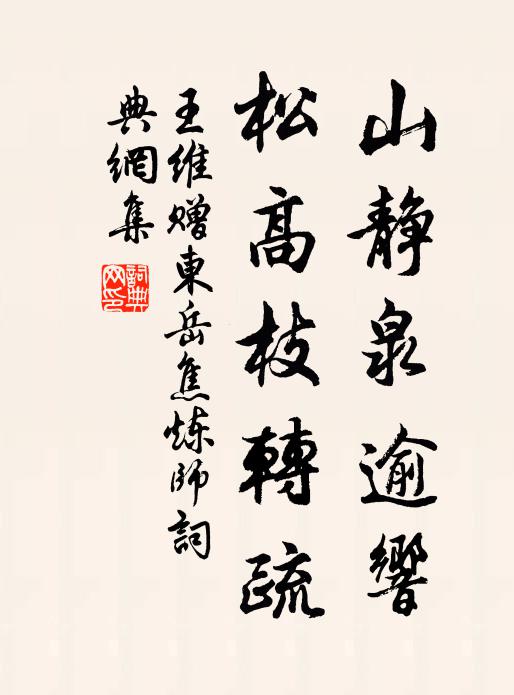 山靜泉逾響
松高枝轉疏
王維贈東岳焦炼師詞
典網集
詞典
网印